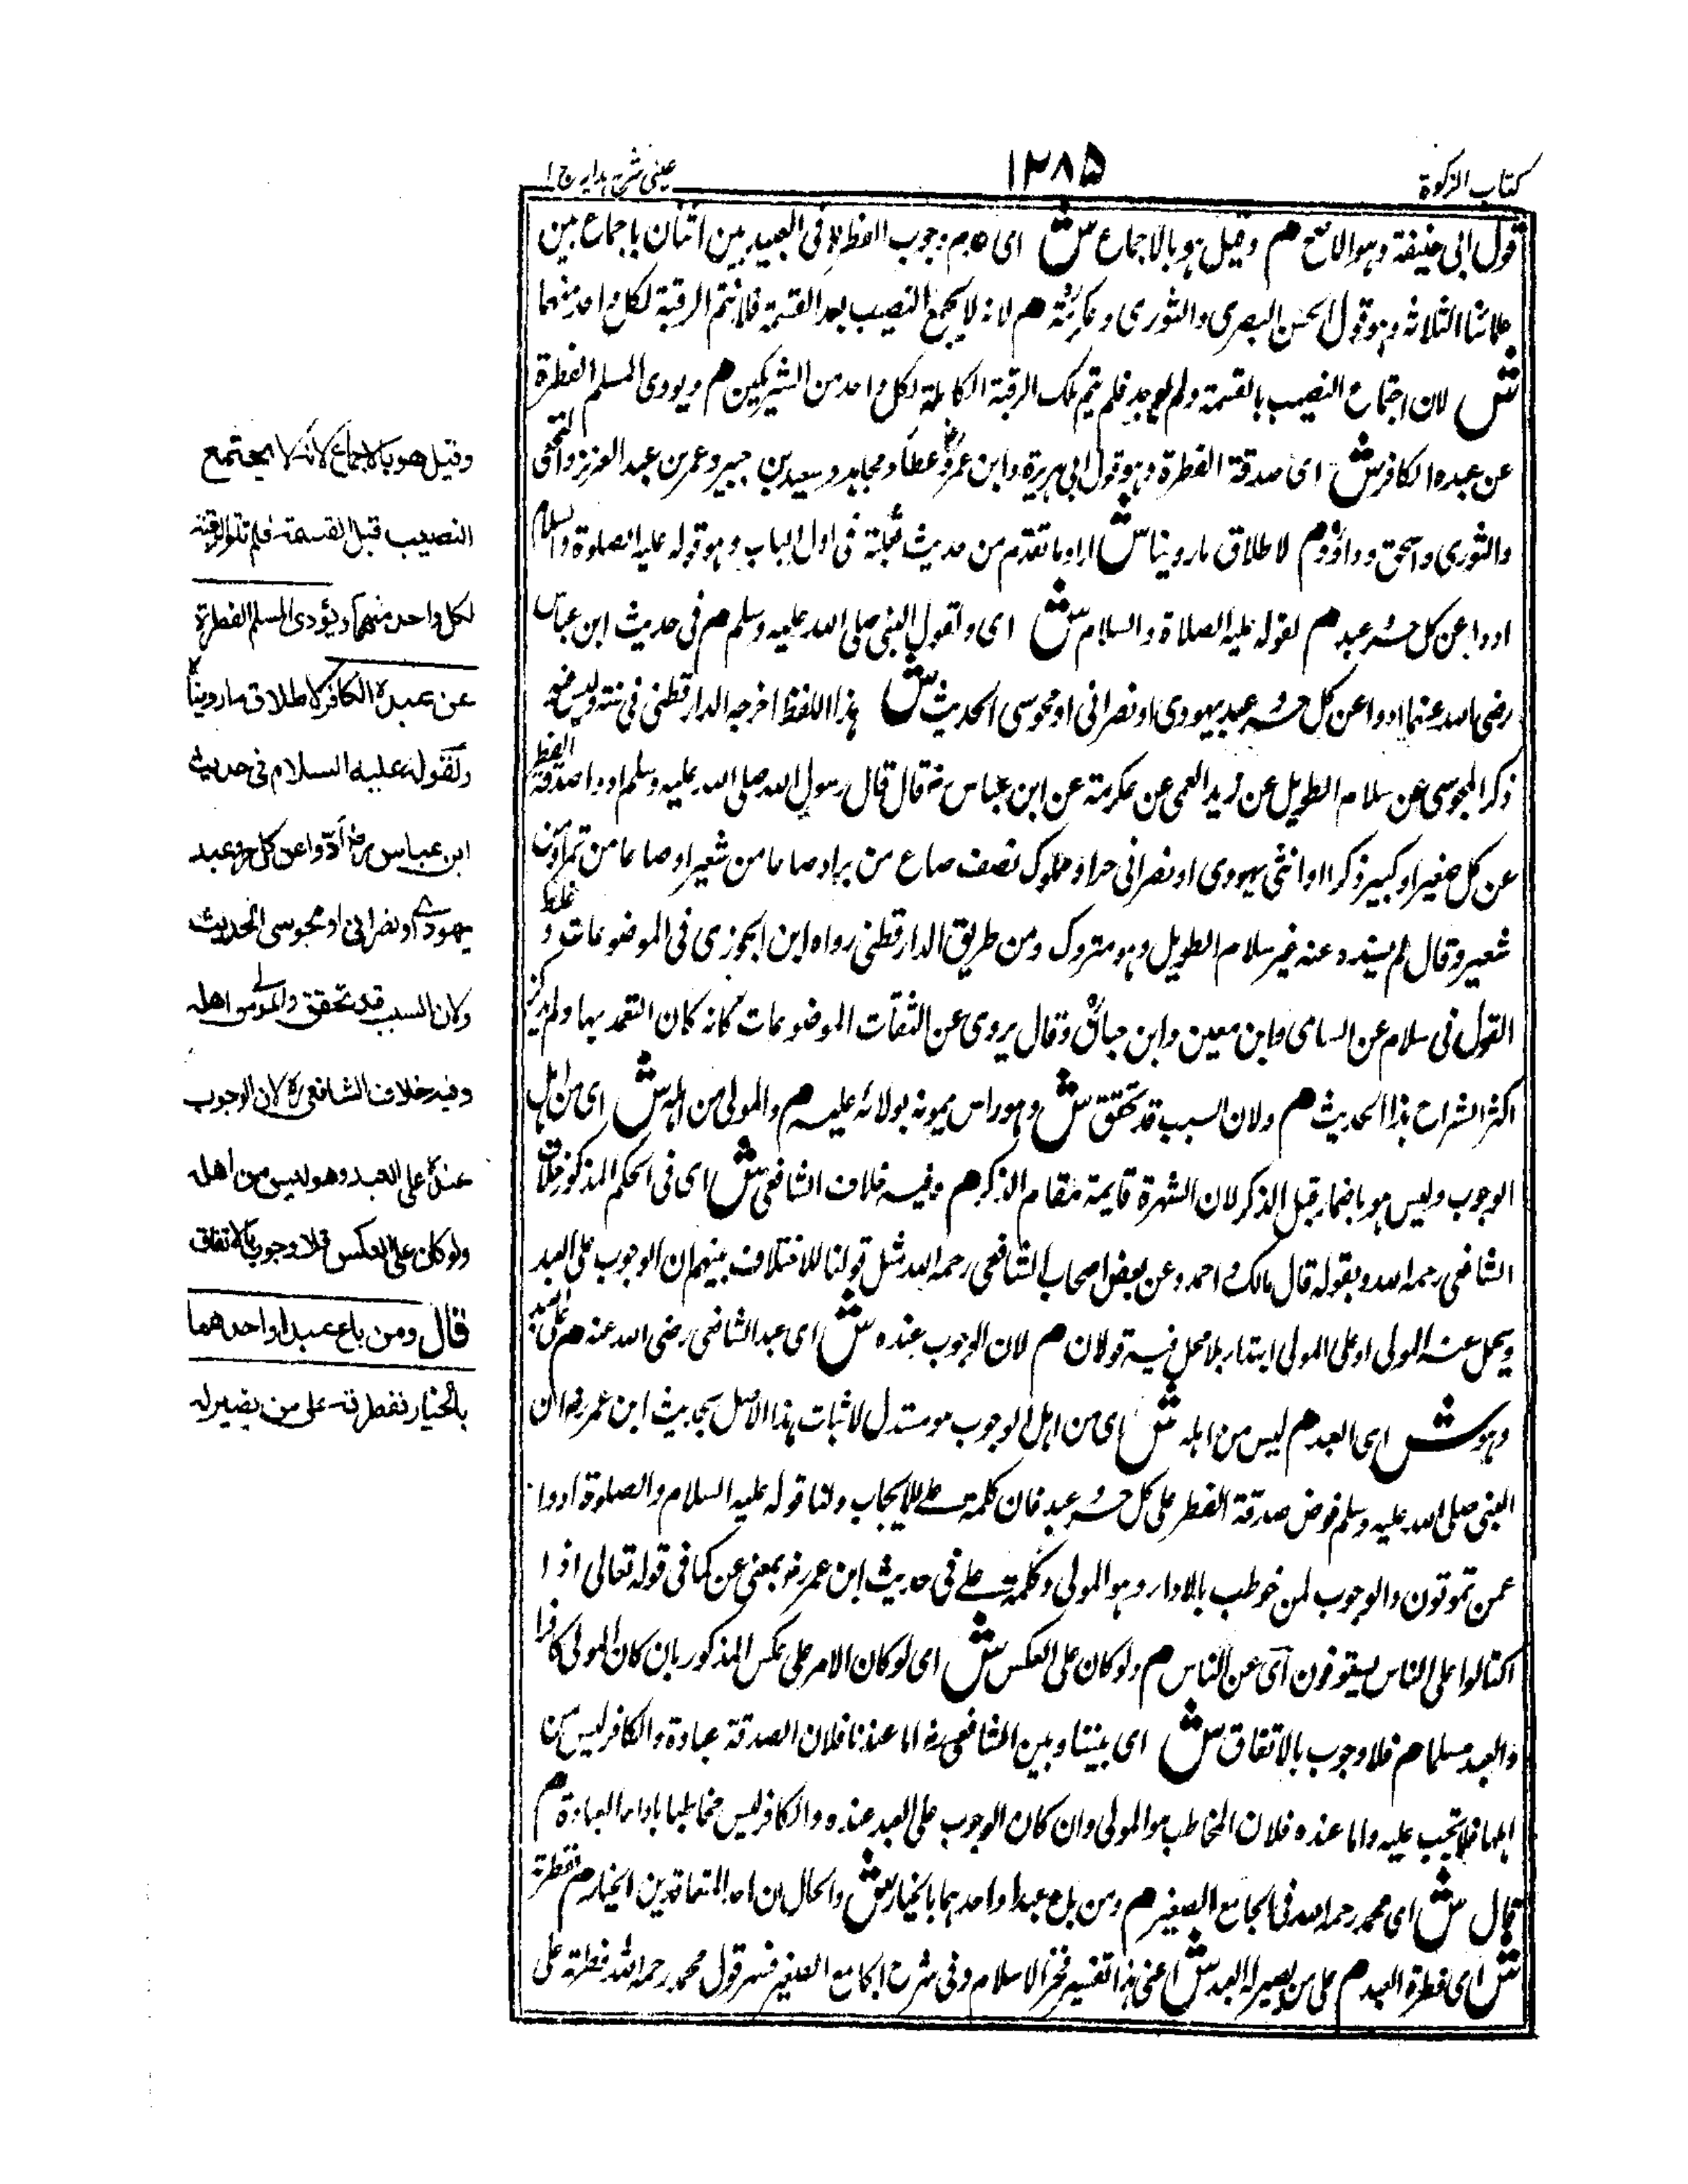 كتاب الزكوة
١٢٨٥
عيني شرح هدايه ج ١
قول ابى حنيفة وهو الاصح م وقيل هو بالاجماع ش اى عدم وجوب الفطرة فى العبيد بين اثنان باجماع بين
علمائنا الثلاثة وهو قول الحسن البصرى والثورى وعكرمة م لانه لا يجمع النصيب بعد القسمة فلا تتم الرقبة لكل واحد منهما
ش لان اجتماع النصيب بالقسمة ولم يوجد فلم يتم ملك الرقبة الكاملة لكل واحد من الشريكين م ويودى المسلم الفطرة
عن عبده الكافر ش اى صدقة الفطرة وهو قول ابى هريرة وابن عمر وعطاء ومجاهد وسعيد بن جبير وعمر بن عبد العزيز والنخعى
والثورى واسحق وداؤد م لاطلاق ما روينا ش اراد ما تقدم من حديث ثعلبة فى اول الباب وهو قوله عليه الصلوة والسلام
ادوا عن كل حر وعبد م لقوله عليه الصلاة والسلام ش اى ولقول النبى صلى الله عليه وسلم م فى حديث ابن عباس
رضى الله عنهما ادوا عن كل حر وعبد يهودى او نصرانى او مجوسى الحديث ش هذا اللفظ اخرجه الدارقطنى فى سننه وليس فيه
ذكر المجوسى عن سلام الطويل عن زيد العمى عن عكرمة عن ابن عباس رضـ قال قال رسول الله صلى الله عليه وسلم ادوا صدقة الفطر
عن كل صغير او كبير ذكر او انثى يهودى او نصرانى حر او مملوك نصف صاع من بر او صاعا من شعير او صاعا من تمر او من
شعير وقال لم يسنده عنه غير سلام الطويل وهو متروك ومن طريق الدارقطنى رواه ابن الجوزى فى الموضوعات وغلظ
القول فى سلام عن السامى وابن معين وابن حبان وقال يروى عن الثقات الموضوعات كانه كان التعمد بها ولم يذكر
اكثر الشراح هذا الحديث م ولان السبب قد تحقق ش وهو راس يمونه بولائه عليه م والمولى من اهله ش اى من اهل
الوجوب وليس هو باضمار قبل الذكر لان الشهرة قايمة مقام الذكر م وفيه خلاف الشافعى ش اى فى الحكم المذكور خلاف
الشافعى رحمه الله وبقوله قال مالك واحمد وعن بعض اصحاب الشافعى رحمه الله مثل قولنا للاختلاف بينهم ان الوجوب على العبد
ويحمل عنه المولى او على المولى ابتداء بلا محل فيه قولان م لان الوجوب عنده ش اى عبد الشافعى رضى الله عنه م على العبد
وهو ش اى العبد م ليس من اهله ش اى من اهل الوجوب هو مستدل لاثبات هذا الاصل بحديث ابن عمر رضـ ان
النبى صلى الله عليه وسلم فرض صدقة الفطر على كل حر وعبد فان كلمة على للايجاب ولنا قوله عليه السلام والصلوة ادوا
عمن تموتون والوجوب لمن خوطب بالاداء وهو المولى وكلمة على فى حديث ابن عمر رضـ بمعنى عن كما فى قوله تعالى اذا
اكتالوا على الناس يستوفون اى عن الناس م ولو كان على العكس ش اى لو كان الامر على عكس المذكور بان كان المولى كافرا
والعبد مسلما م فلا وجوب بالاتفاق ش اى بيننا وبين الشافعى رح اما عندنا فلان الصدقة عبادة والكافر ليس من
اهلها فلا تجب عليه واما عنده فلان المخاطب هو المولى وان كان الوجوب على العبد عنده والكافر ليس مخاطبا باداء العبادة م
قال ش اى محمد رحمه الله فى الجامع الصغير م ومن باع عبدا واحدهما بالخيار ش والحال ان احد المتعاقدين الخيار م ففطرته
ش اى فطرة العبد م على من يصير له العبد ش اعنى هذا تفسير فخر الاسلام وفى شرح الجامع الصغير فسر قول محمد رحمه الله فطرته على
وقيل هو بالاجماع لانه لا يجتمع
النصيب قبل القسمة فلم تتم الرقبة
لكل واحد منهما ويؤدى المسلم الفطرة
عن عبده الكافر لاطلاق ما روينا
ولقوله عليه السلام فى حديث
ابن عباس رضـ أدّوا عن كل حر وعبد
يهودي او نصرانى او مجوسى الحديث
ولان السبب قد تحقق والمولى من اهله
وفيه خلاف الشافعي ره لان الوجوب
عنده على العبد وهو ليس من اهله
ولو كان على العكس فلا وجوب بالاتفاق
قال ومن باع عبدا واحدهما
بالخيار ففطرته على من يصير له